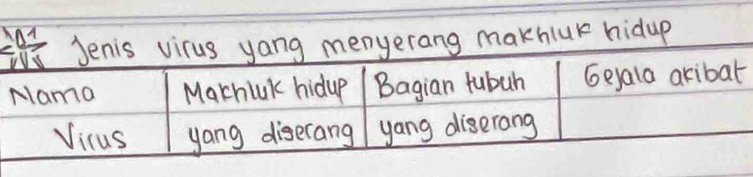 Jenis virus yang menyerang makhluk hidup
Nama Makhluk hidup Bagian tubuh Gejala akibat
Virus yang diserang yang diserang